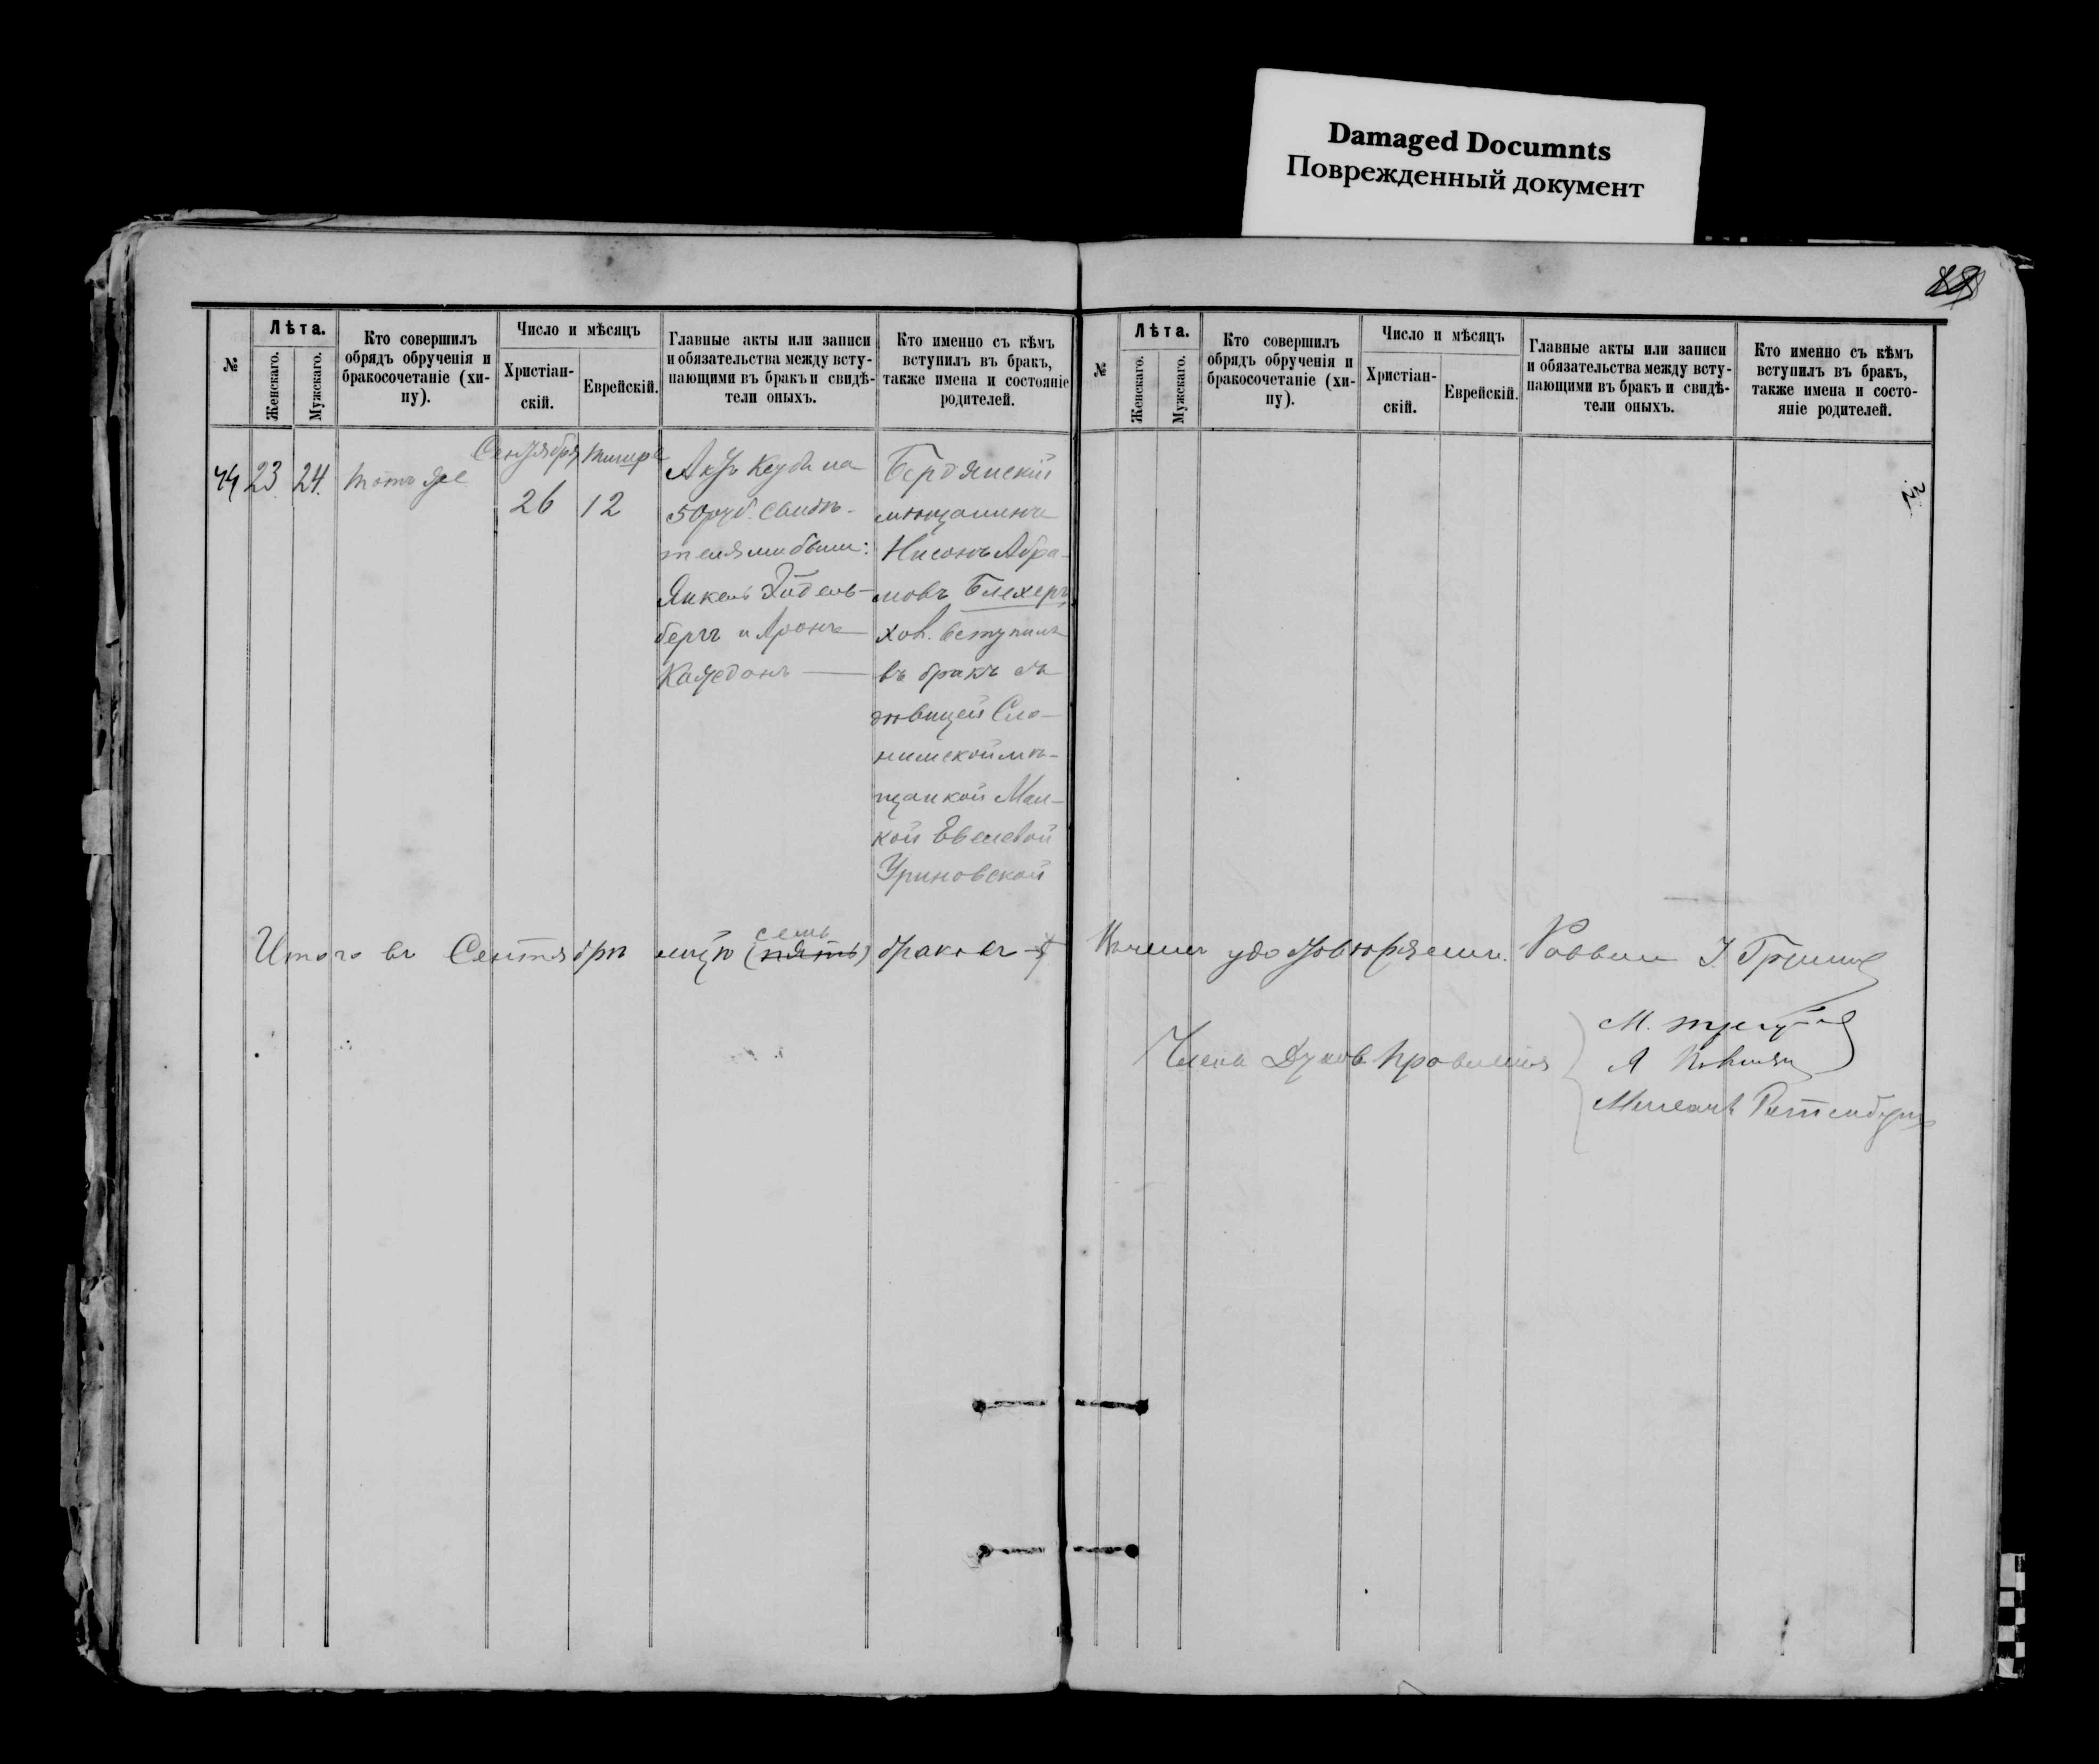 Damaged Documnts
Поврежденный документ
№
Лѣта.
Женскаго.
Мужскаго.
Кто совершилъ
обрядъ обрученія и
бракосочетаніе (хи-
пу).
Число и мѣсяцъ
Христіан-
скій.
Еврейскій.
Главные акты или записи
и обязательства между всту-
пающими въ бракъ и свидѣ-
тели оныхъ.
Кто именно съ кѣмъ
вступилъ въ бракъ,
также имена и состояніе
родителей.
44
23.
24.
Тотъ же
Сентября
26
Тишре
12
Актъ Кеуба на
50 руб. Свидѣ-
телями были:
Янкель Эйдель-
бергъ и Аронъ
Бердянскій
мѣщанинъ
Нисонъ Абра-
мовъ Блехеръ,
хол. вступилъ
въ бракъ съ
дѣвицей Сло-
нимской мѣ-
щанкой Мал-
кой Евелевой
Уриновской
Итого въ Сентябрѣ м-цѣ семь (пять) браковъ
№
Лѣта.
Женскаго.
Мужскаго.
Кто совершилъ
обрядъ обрученія и
бракосочетаніе (хи-
пу).
Число и мѣсяцъ
Христіан-
скій.
Еврейскій.
Главные акты или записи
и обязательства между всту-
пающими въ бракъ и свидѣ-
тели оныхъ.
Кто именно съ кѣмъ
вступилъ въ бракъ,
также имена и состо-
яніе родителей.
удостовѣряемъ. Раввинъ
Члены Духов. Правленія
М.